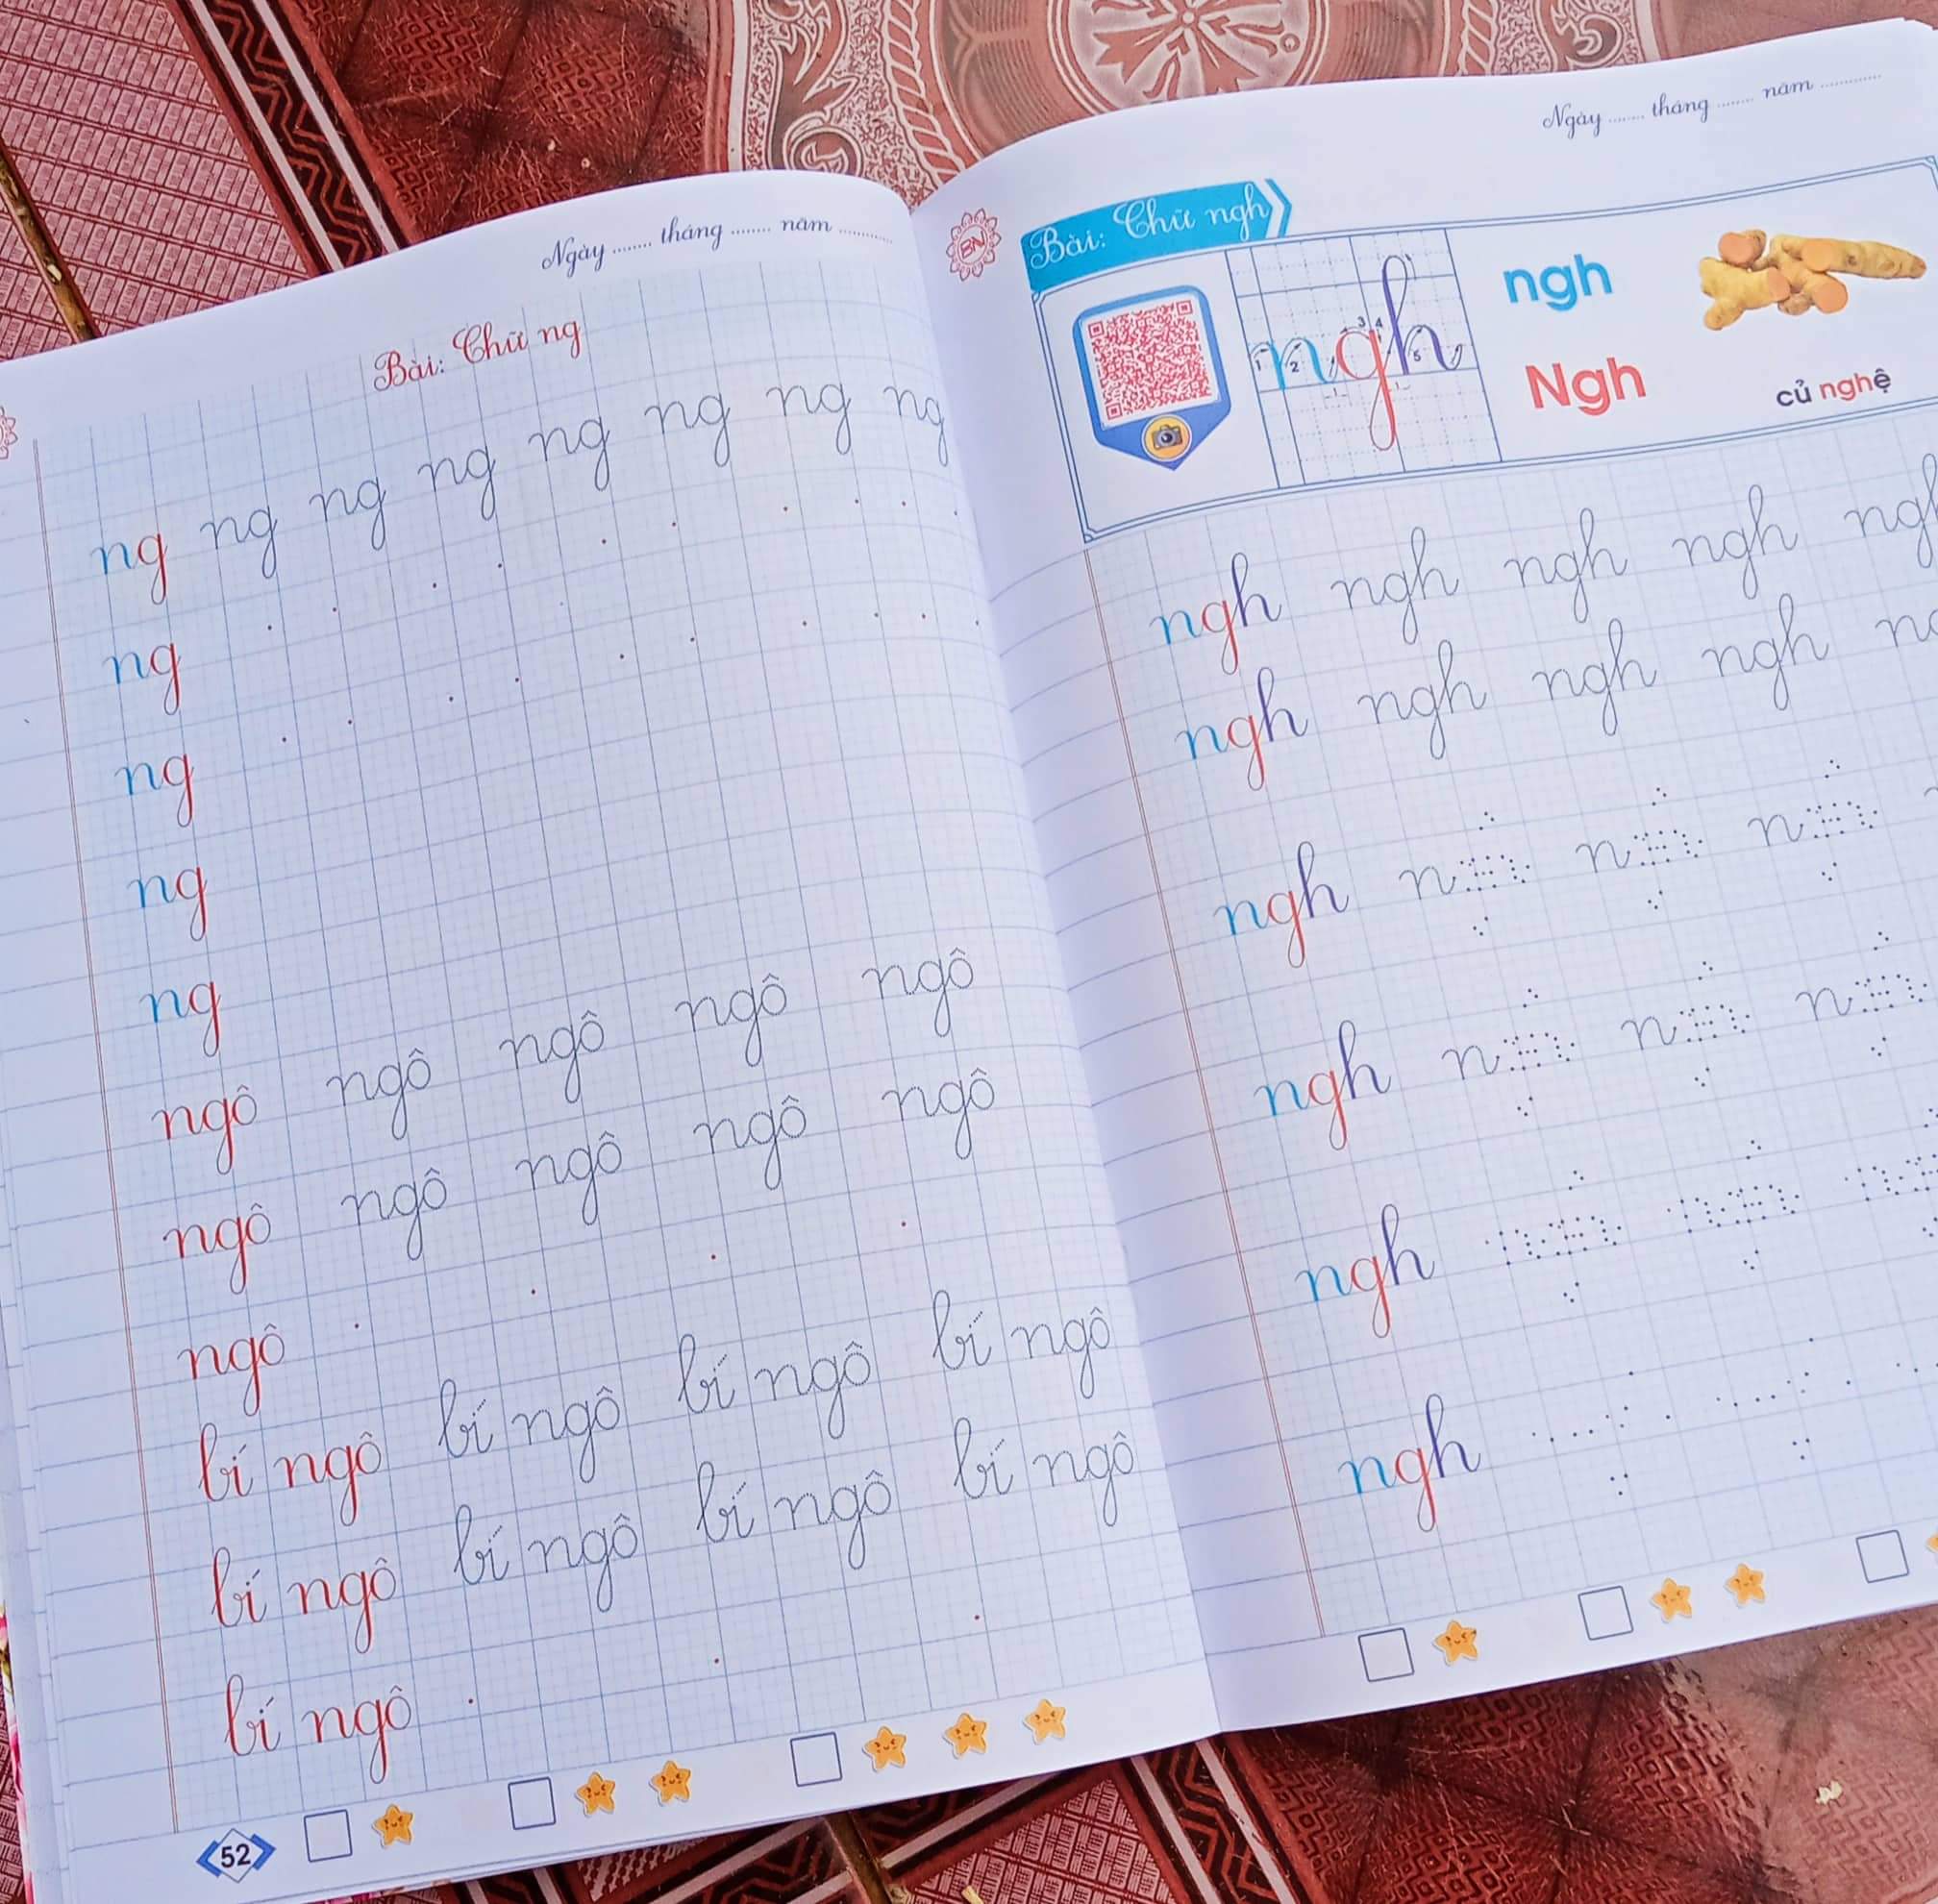 Ngày ........ tháng ........ năm ...........
Bài: Chữ ng
ng ng ng ng ng ng ng ng
ng
ng
ng
ng
ngô ngô ngô ngô ngô
ngô ngô ngô ngô ngô
ngô
bí ngô bí ngô bí ngô bí ngô
bí ngô bí ngô bí ngô bí ngô
bí ngô
52
Ngày ........ tháng ........ năm ...........
BN
Bài: Chữ ngh
ngh
1 2 3 4 5
ngh
Ngh
củ nghệ
ngh ngh ngh ngh
ngh ngh ngh ngh
ngh ngh ngh ngh
ngh ngh ngh ngh
ngh ngh ngh
ngh